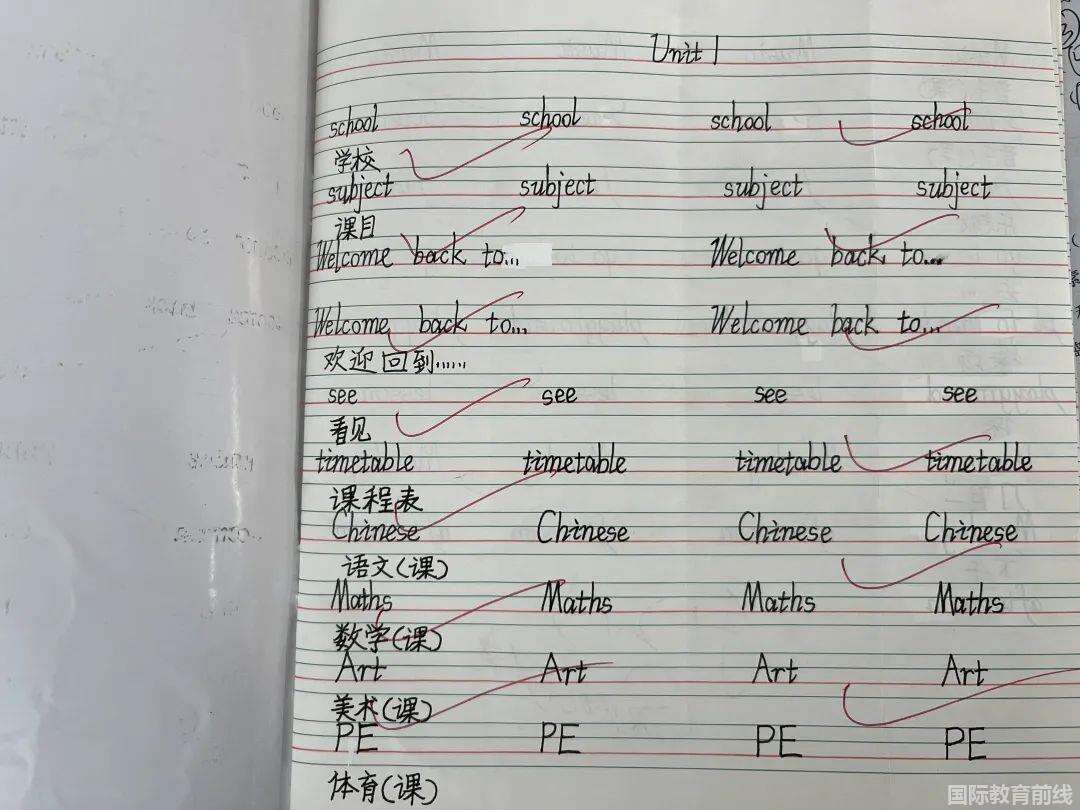 Unit 1
school school school school
学校
subject subject subject subject
课目
Welcome back to... Welcome back to...
Welcome back to... Welcome back to...
欢迎回到......
see see see see
看见
timetable timetable timetable timetable
课程表
Chinese Chinese Chinese Chinese
语文(课)
Maths Maths Maths Maths
数学(课)
Art Art Art Art
美术(课)
PE PE PE PE
体育(课)
国际教育前线